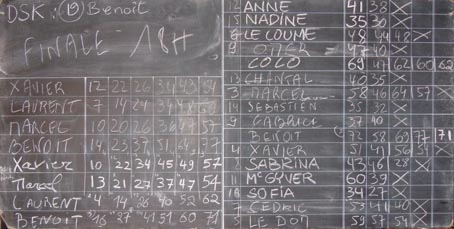 DSK: 19 Benoît
FINALE 18H
XAVIER 12 22 26 34 43 54
LAURENT 7 14 24
MARCEL 10 20 26 36
BENOIT 14 23 37 51 64 77
Xavier 10 22 34 45 49 57
Marcel 13 21 27 37 47 54
LAURENT 4 14 26 40 52 62
BENOIT 16 27 41 51 60 71
ANNE 41 38 X
15 NADINE 35 30
6 LE LOUME 48 44 48 X
9 40
COLO 69 47 62 60 62
13 CHANTAL 40 35 X
3 MARCEL 58 46 64 57 X
14 SEBASTIEN 35 32 X
9 GABRIEL 37 40 X
BENOIT 72 58 69 77 71
4 XAVIER 51 41 56 X
8 SABRINA 43 46 28 X
11 McGYVER 60 39 X
16 SOFIA 34 27 X
7 CEDRIC 53 41 40 X
5 LE DOM 59 57 54 X